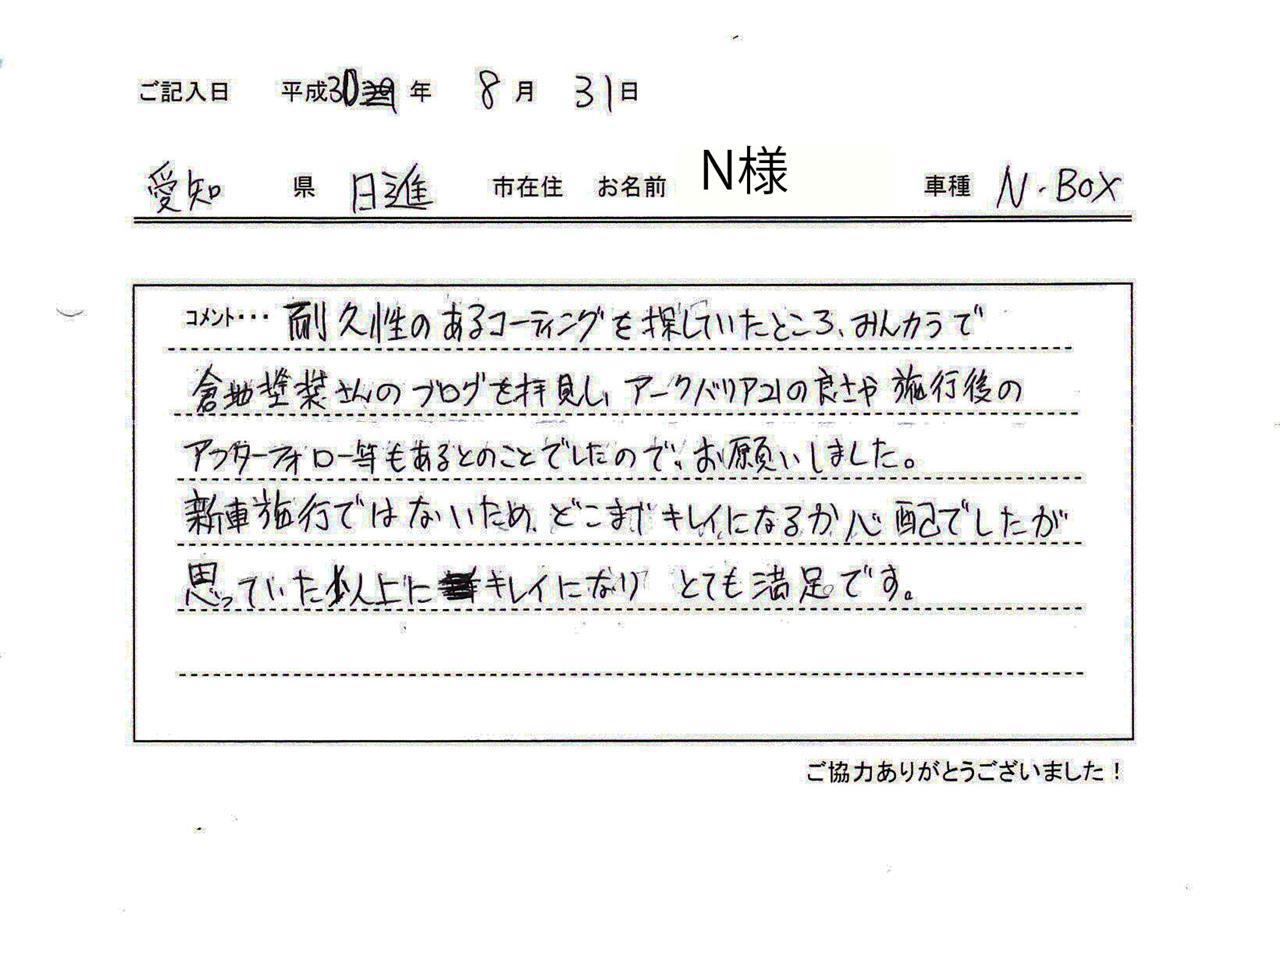 ご記入日 平成30年 8月 31日
愛知 県 日進 市在住 お名前 N様 車種 N-BOX
コメント･･･ 耐久性のあるコーティングを探していたところ、みんカラで
倉地塗装さんのブログを拝見し、アークバリア21の良さや施行後の
アフターフォロー等もあるとのことでしたので、お願いしました。
新車施行ではないため、どこまでキレイになるか心配でしたが
思っていた以上にキレイになり とても満足です。
ご協力ありがとうございました！